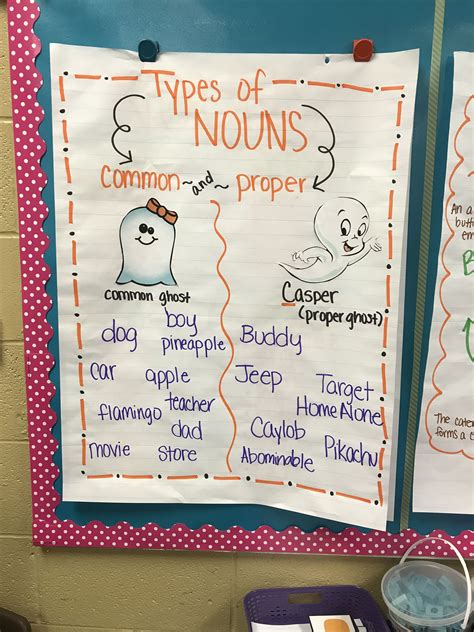 Types of
NOUNS
common and proper
common ghost
dog
boy
pineapple
car
apple
flamingo
teacher
dad
movie
store
Casper
(proper ghost)
Buddy
Jeep
Target
Home Alone
Caylob
Pikachu
Abominable
An a
butt
em
The cate
forms a c